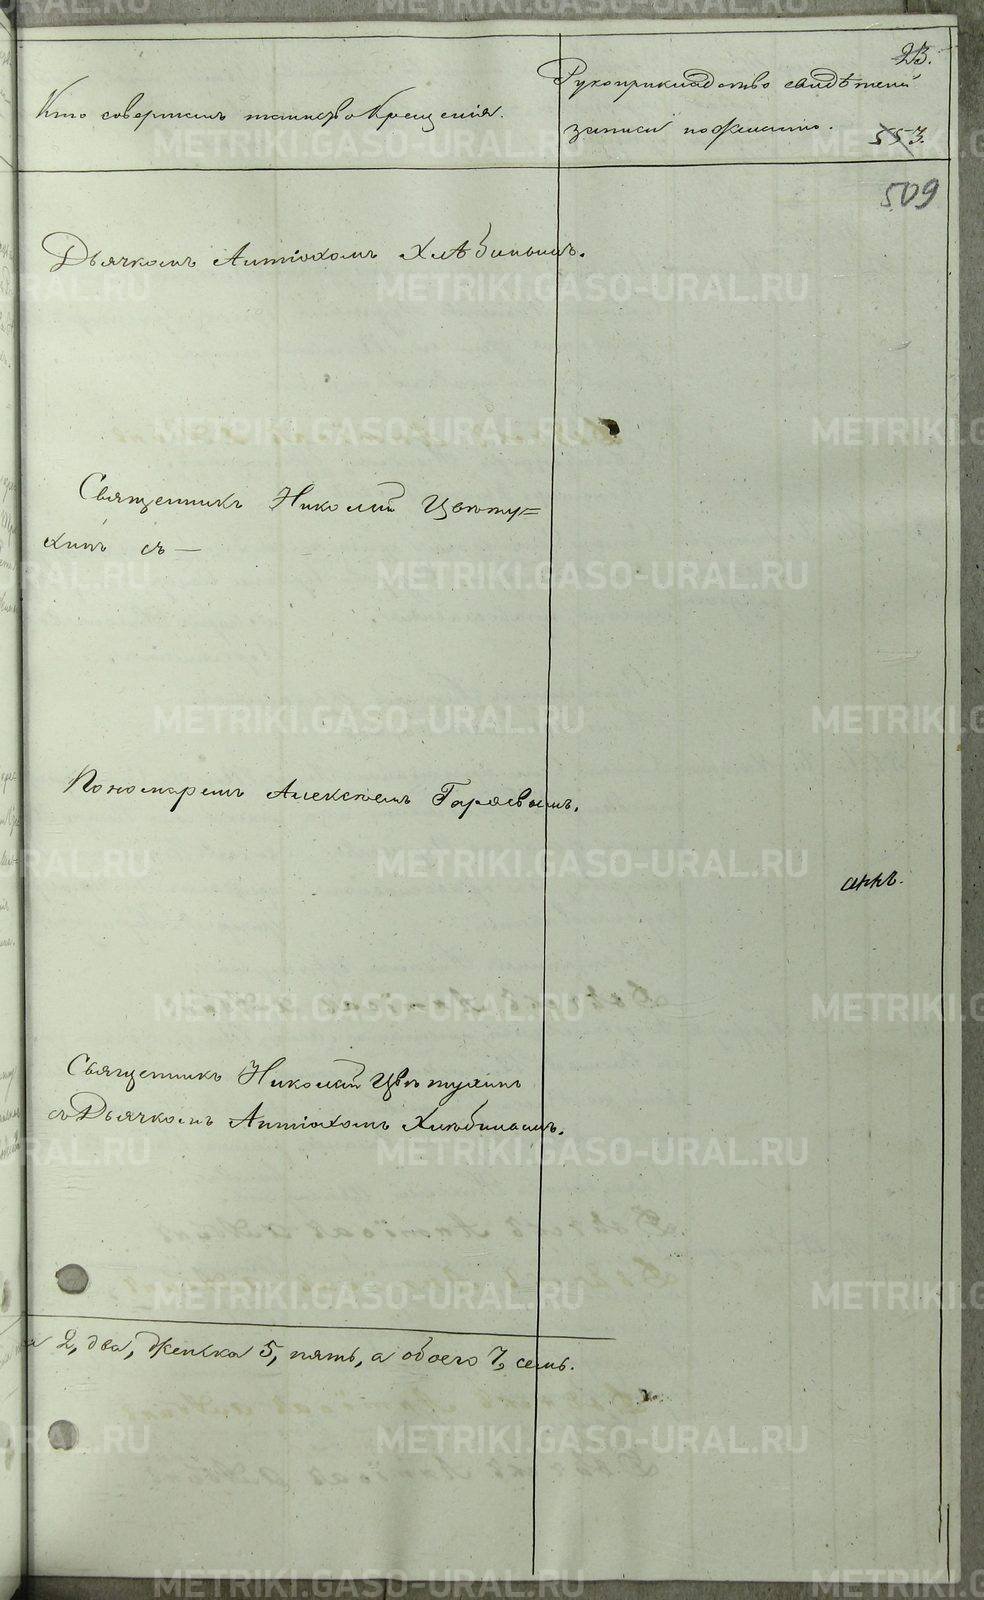 23.
Кто совершалъ таинство Крещенія.
Рукоприкладство свидѣтелей
записи по желанію.
553.
509
Дьячкомъ Антіохомъ Хлѣбинымъ.
Священникъ Николай Цвѣту=
хинъ съ —
Пономаремъ Алексѣемъ
Священникъ Николай Цвѣтухинъ
съ Дьячкомъ Антіохомъ Хлѣбинымъ.
2, два, женска 5, пять, а обоего 7, семь.
METRIKI.GASO-URAL.RU